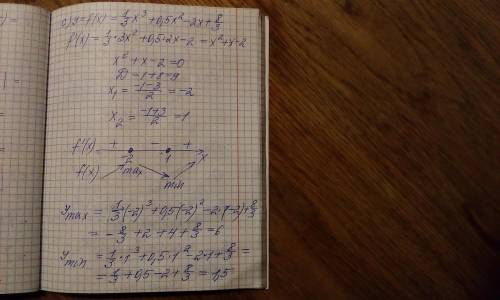 a) y=f(x) = 1/3 x³ + 0,5x² - 2x + 8/3
f'(x) = 1/3 · 3x² + 0,5 · 2x - 2 = x² + x - 2
x² + x - 2 = 0
D = 1 + 8 = 9
x₁ = (-1-3)/2 = -2
x₂ = (-1+3)/2 = 1
f'(x) + - +
-2 1 x
f(x) max min
y max = 1/3 (-2)³ + 0,5(-2)² - 2·(-2) + 8/3
= - 8/3 + 2 + 4 + 8/3 = 6
y min = 1/3 · 1³ + 0,5 · 1² - 2·1 + 8/3 =
= 1/3 + 0,5 - 2 + 8/3 = 1,5